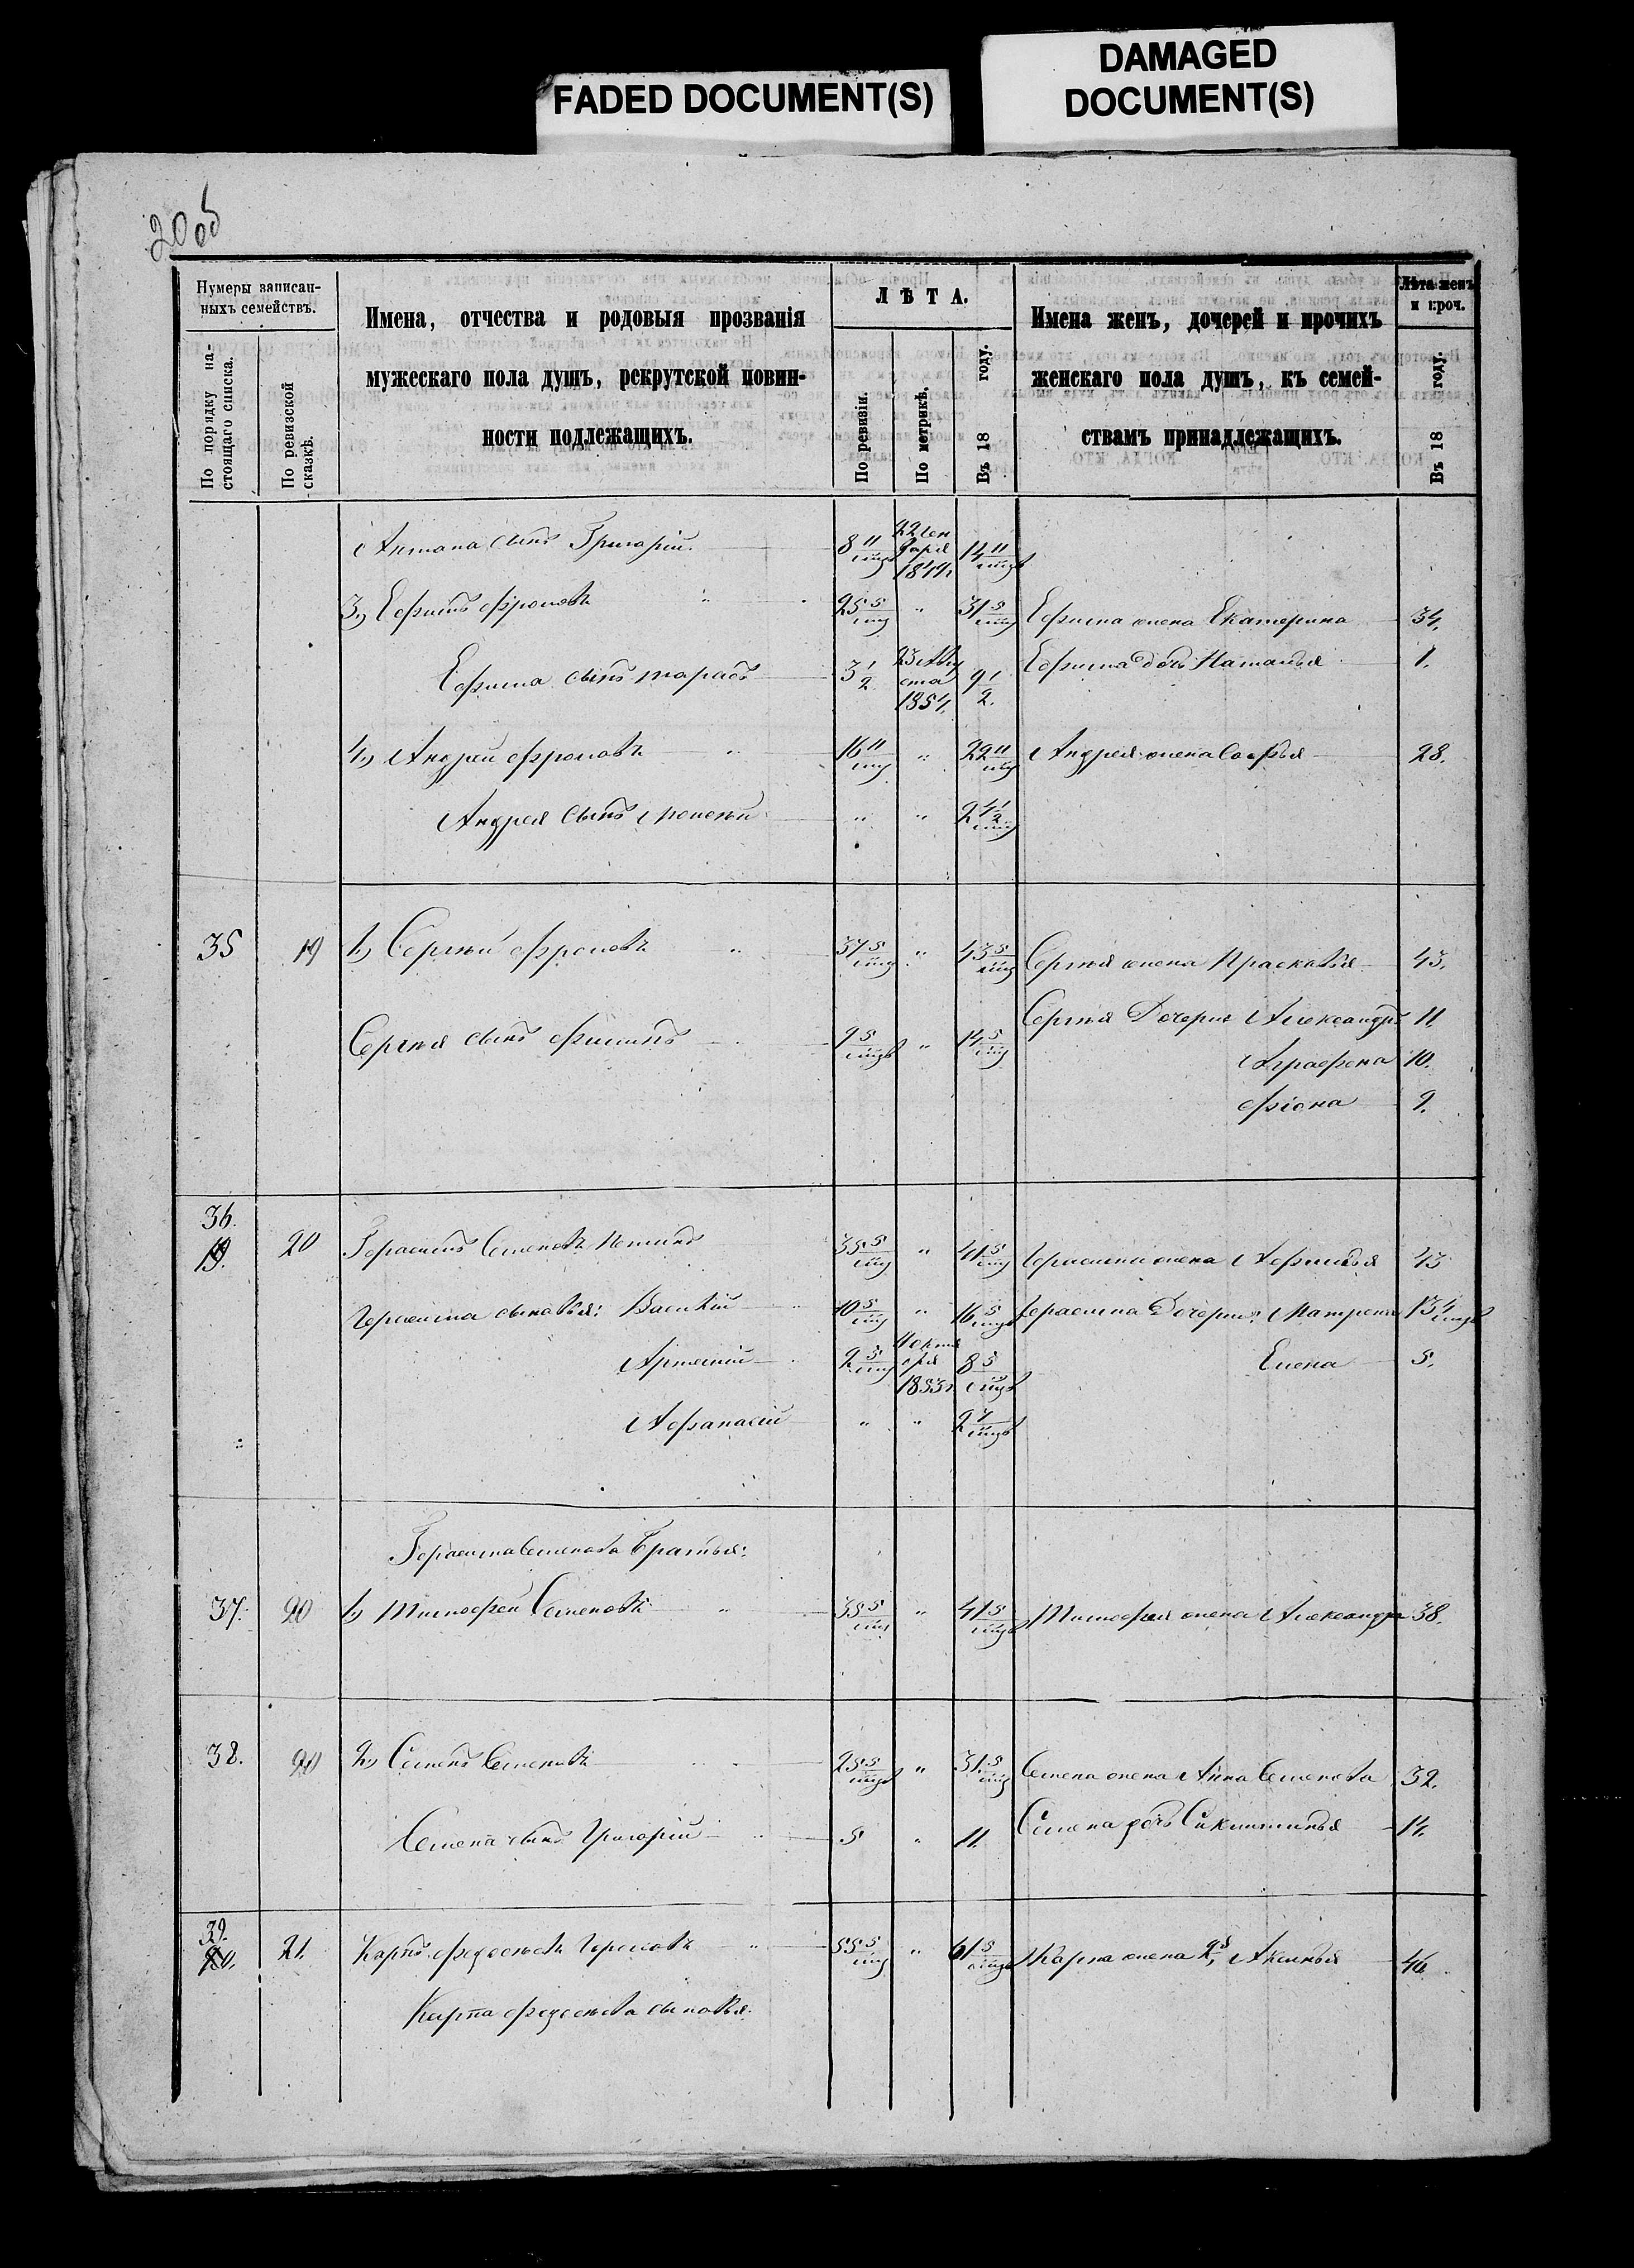 FADED DOCUMENT(S)
DAMAGED
DOCUMENT(S)
20 об
Нумеры записан-
ныхъ семействъ.
По порядку на-
стоящаго списка.
По ревизской
сказкѣ.
Имена, отчества и родовыя прозванія
мужескаго пола душъ, рекрутской повин-
ности подлежащихъ.
ЛѢТА.
По ревизіи.
По метрикѣ.
Въ 18 году.
Имена женъ, дочерей и прочихъ
женскаго пола душъ, къ семей-
ствамъ принадлежащихъ.
Лѣта женъ
и проч.
Въ 18 году.
Антона сынъ Григорій 8 11 14 11
3, Ефимъ Фроловъ " 25 5 " 31 5 Ефима жена Екатерина 34.
Ефима сынъ Тарасъ 3 1/2 1854. 9 1/2. Ефима дочь Наталья 1.
4, Андрей Фроловъ " 16 11 " 22 11 Андрея жена Софья 28.
Андрея сынъ " " 2 4 1/2
35 19 1, Сергѣй Фроловъ " 37 5 " 43 5 Сергѣя жена Прасковья 43.
Сергѣя Дочери Александра 11
Сергѣя сынъ Филипъ 9 5 " 14 5
Аграфена 10.
Фіона 9.
36.
19. 20 Герасимъ Семеновъ 35 5 " 41 5 Герасима жена Афимья 43
Герасима сыновья: Василій 10 5 " 16 5 Герасима Дочери: Матрена 13 4
Артемій 2 5 1853 8 5 Елена 5.
Афанасій " " 2 7
Герасима Семенова братья:
37. 20 1, Тимофей Семеновъ " 35 5 " 41 5 Тимофея жена Александра 38.
38. 20 2, Семенъ Семеновъ 25 5 " 31 5 Семена жена Анна Семенова 32.
Семена сынъ Григорій 5 " 11. Семена дочь 14.
39.
20. 21. Карпъ Федосѣевъ " 55 5 " 61 5 Карпа жена Акилина 46
Карпа Федосѣева сыновья: